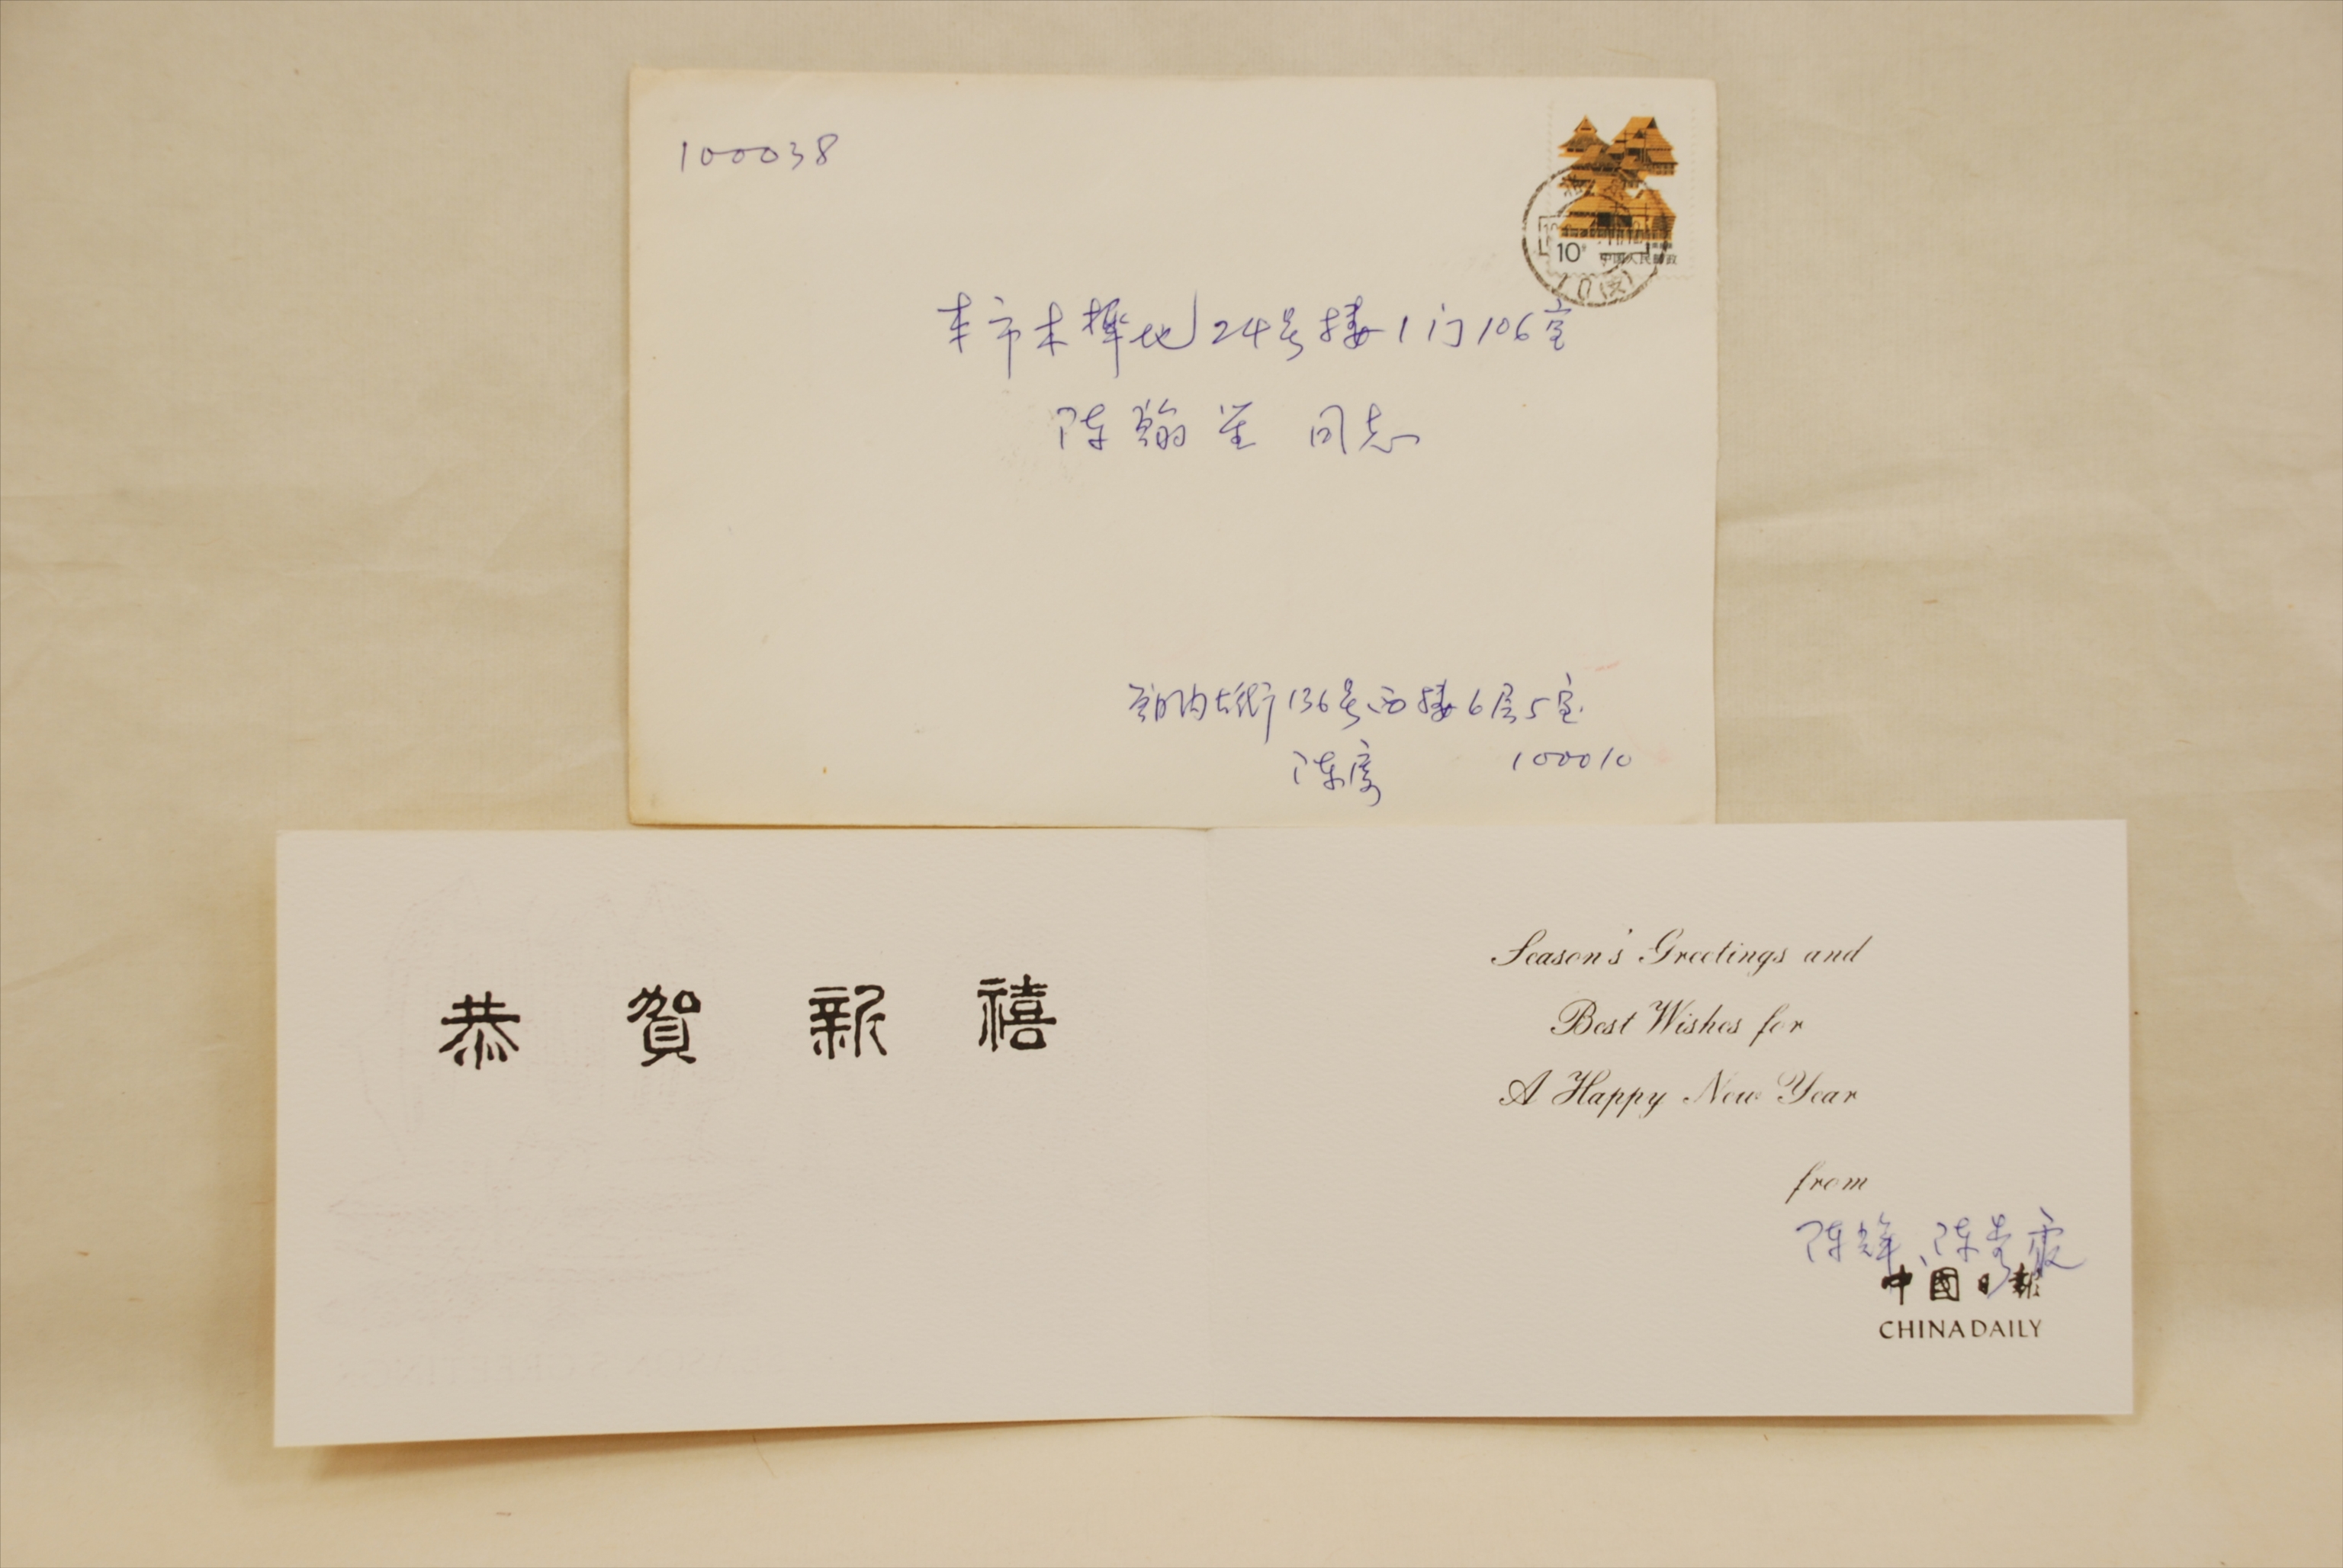 100038
10分 中国人民邮政
北京
10(支)
本市木樨地24号楼1门106室
陈翰笙 同志
朝内大街136号西楼6层5室
陈
100010
恭賀新禧
Season's Greetings and
Best Wishes for
A Happy New Year
from
陈辉、陈秀霞
中國日報
CHINA DAILY
SEASON'S GREETINGS